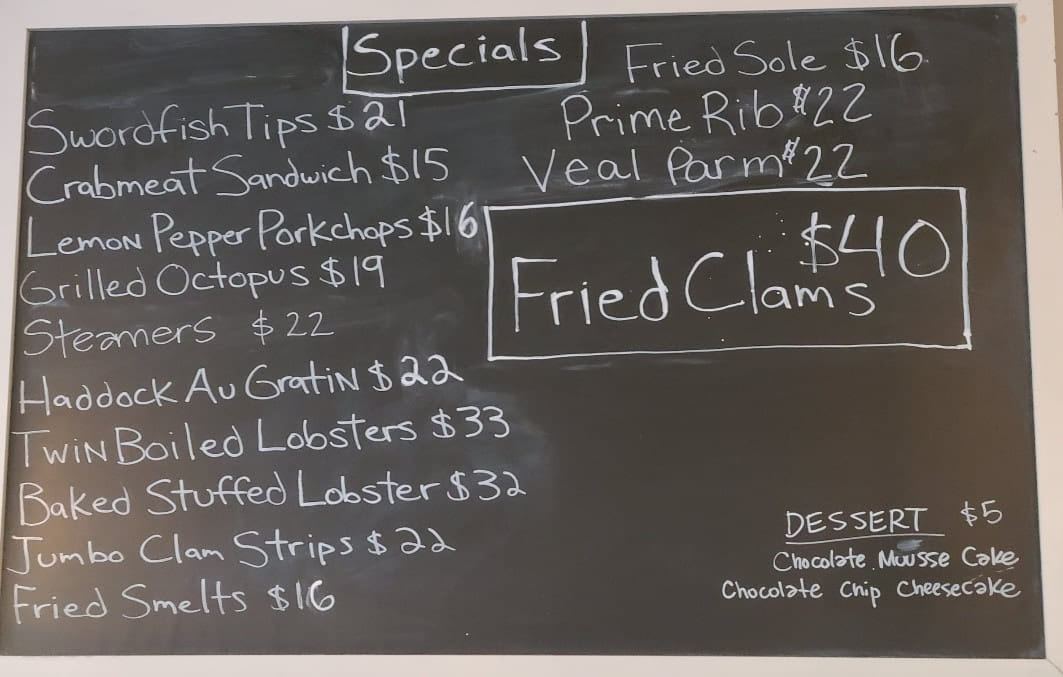 Specials
Swordfish Tips $21
Crabmeat Sandwich $15
Lemon Pepper Porkchops $16
Grilled Octopus $19
Steamers $22
Haddock Au Gratin $22
Twin Boiled Lobsters $33
Baked Stuffed Lobster $32
Jumbo Clam Strips $22
Fried Smelts $16
Fried Sole $16
Prime Rib $22
Veal Parm $22
$40
Fried Clams
DESSERT $5
Chocolate Mousse Cake
Chocolate Chip Cheesecake